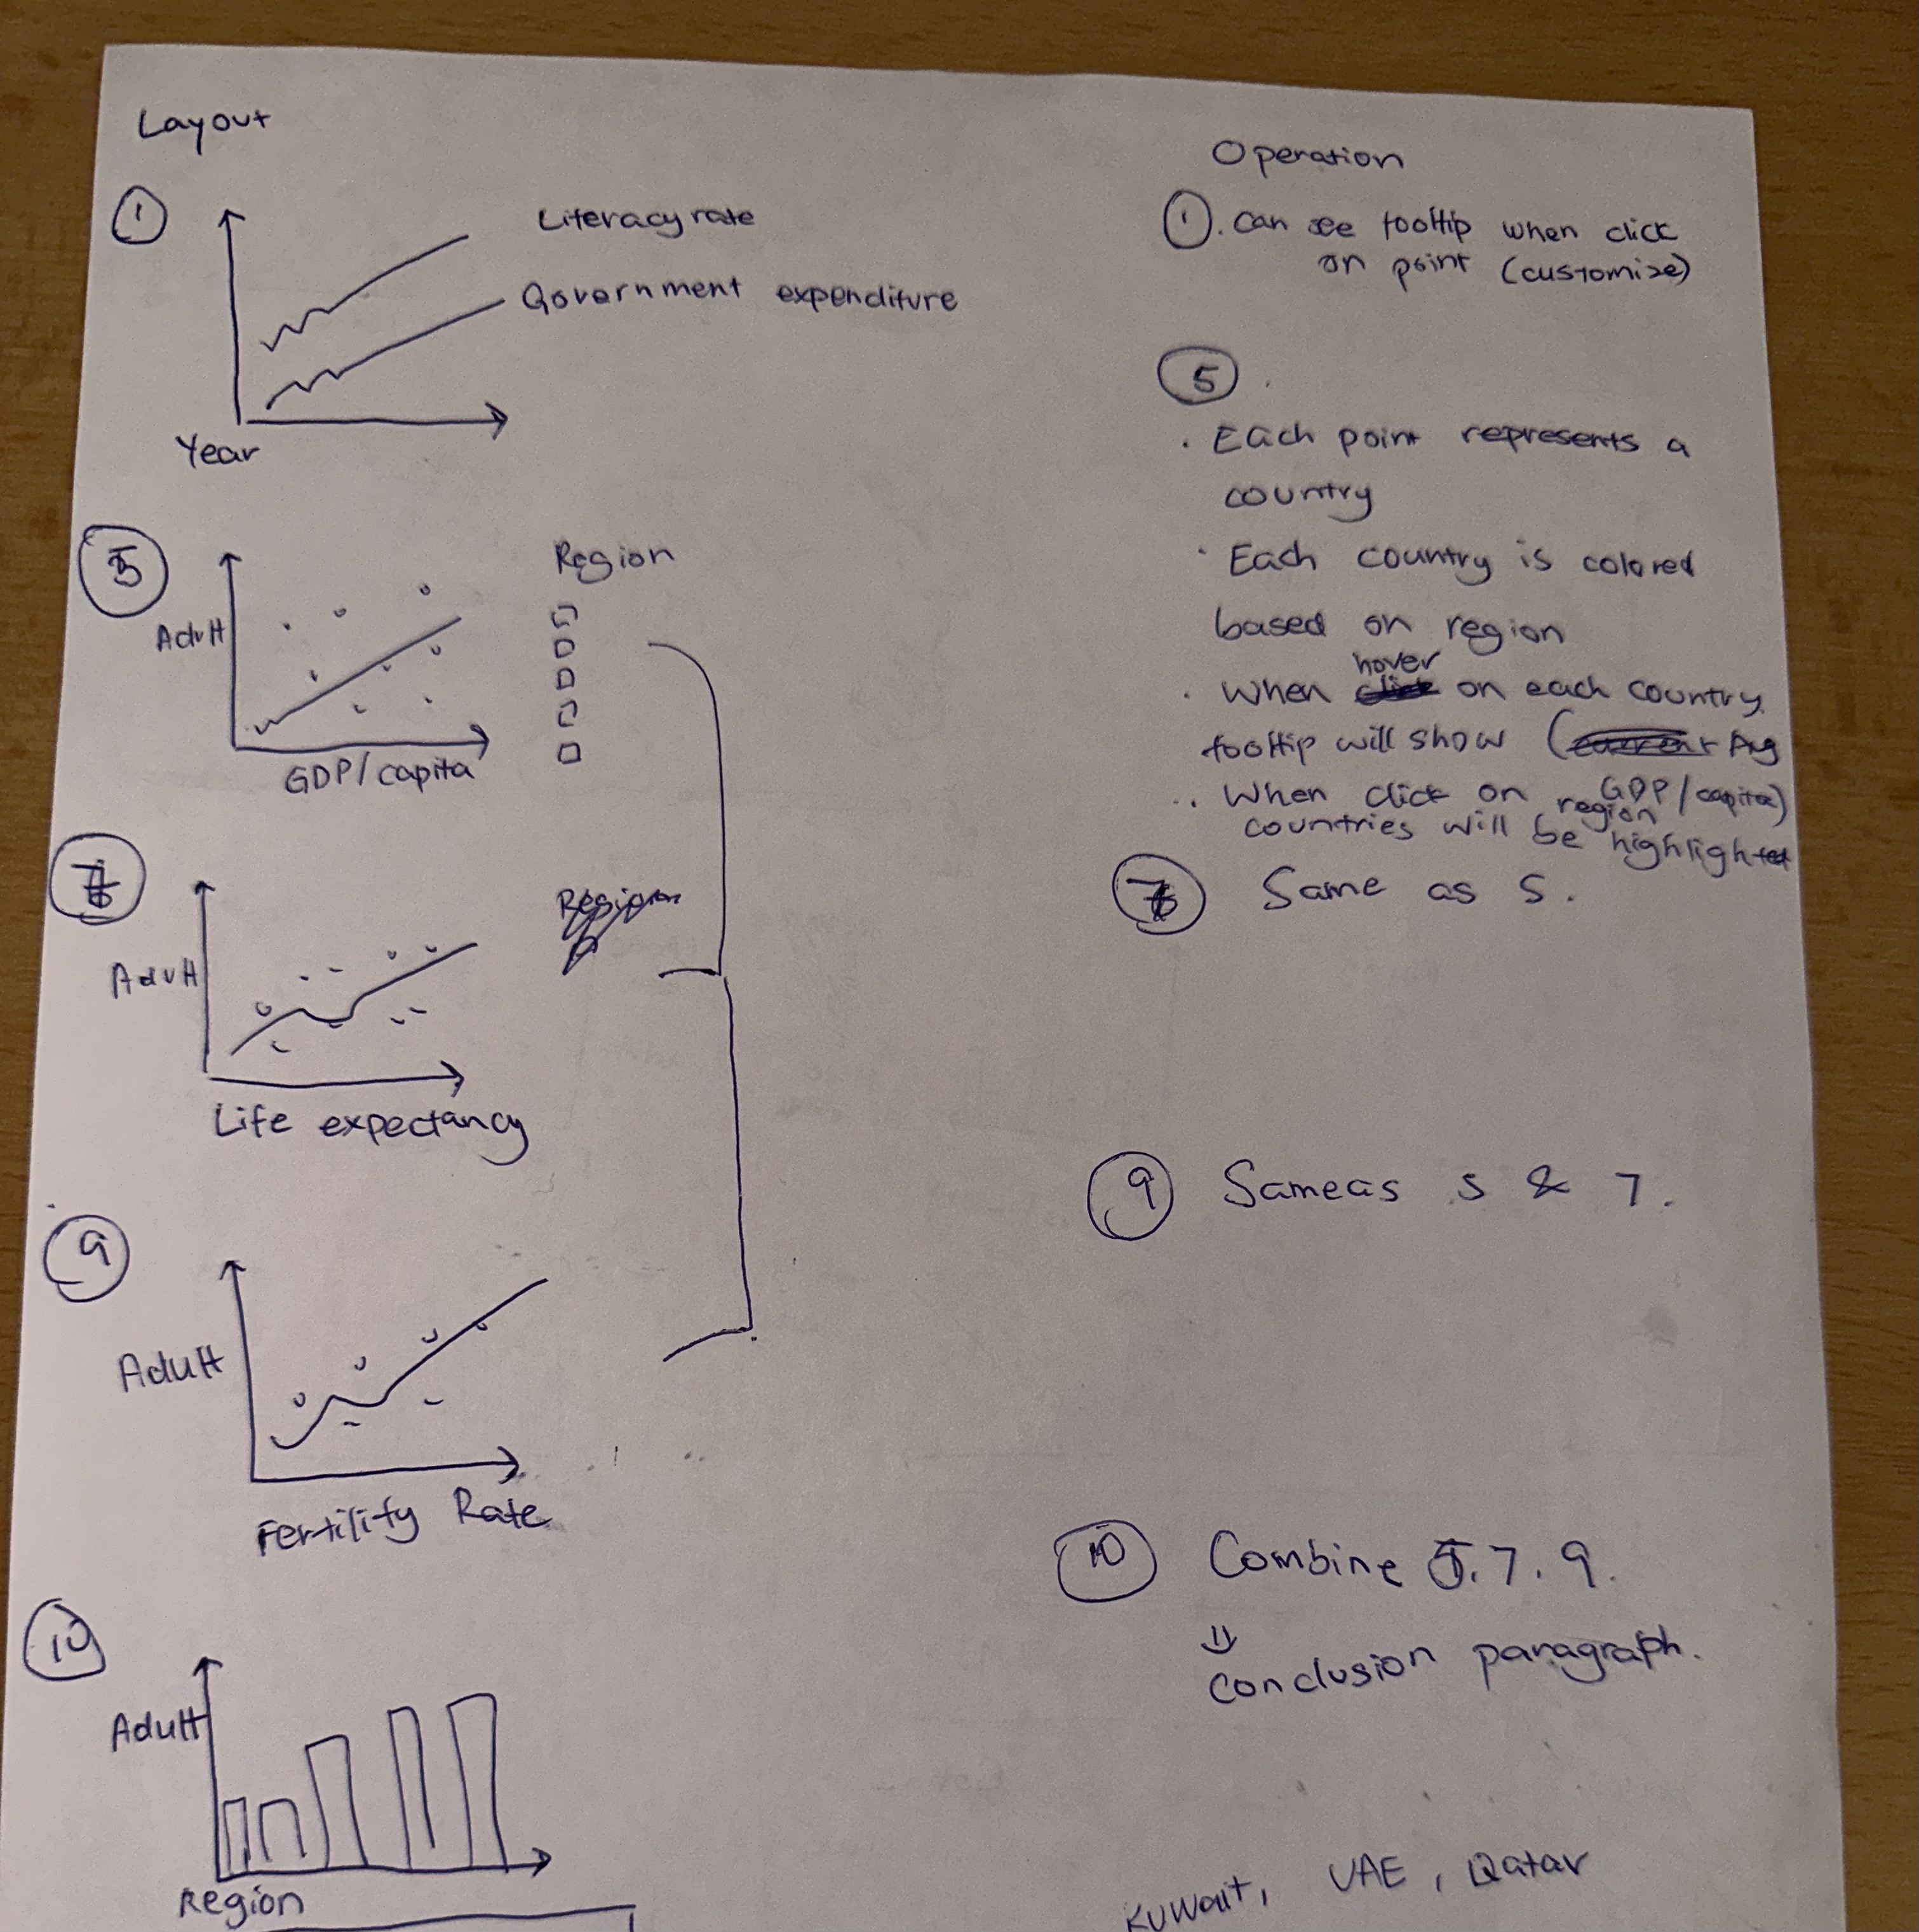 Layout
① Literacy rate
Government expenditure
Year
⑤ Region
Adult
GDP/capita
⑦
Adult
Region
Life expectancy
⑨
Adult
Fertility Rate
⑩
Adult
Region
Operation
①. can see tooltip when click
on point (customize)
⑤.
· Each point represents a
country
· Each country is colored
based on region
hover
· When click on each country
tooltip will show (current Avg
GDP/capita)
· When click on region
countries will be highlighted
⑦ Same as 5.
⑨ Same as 5 & 7.
⑩ Combine 5. 7. 9.
⇓
Conclusion paragraph.
Kuwait, UAE, Qatar